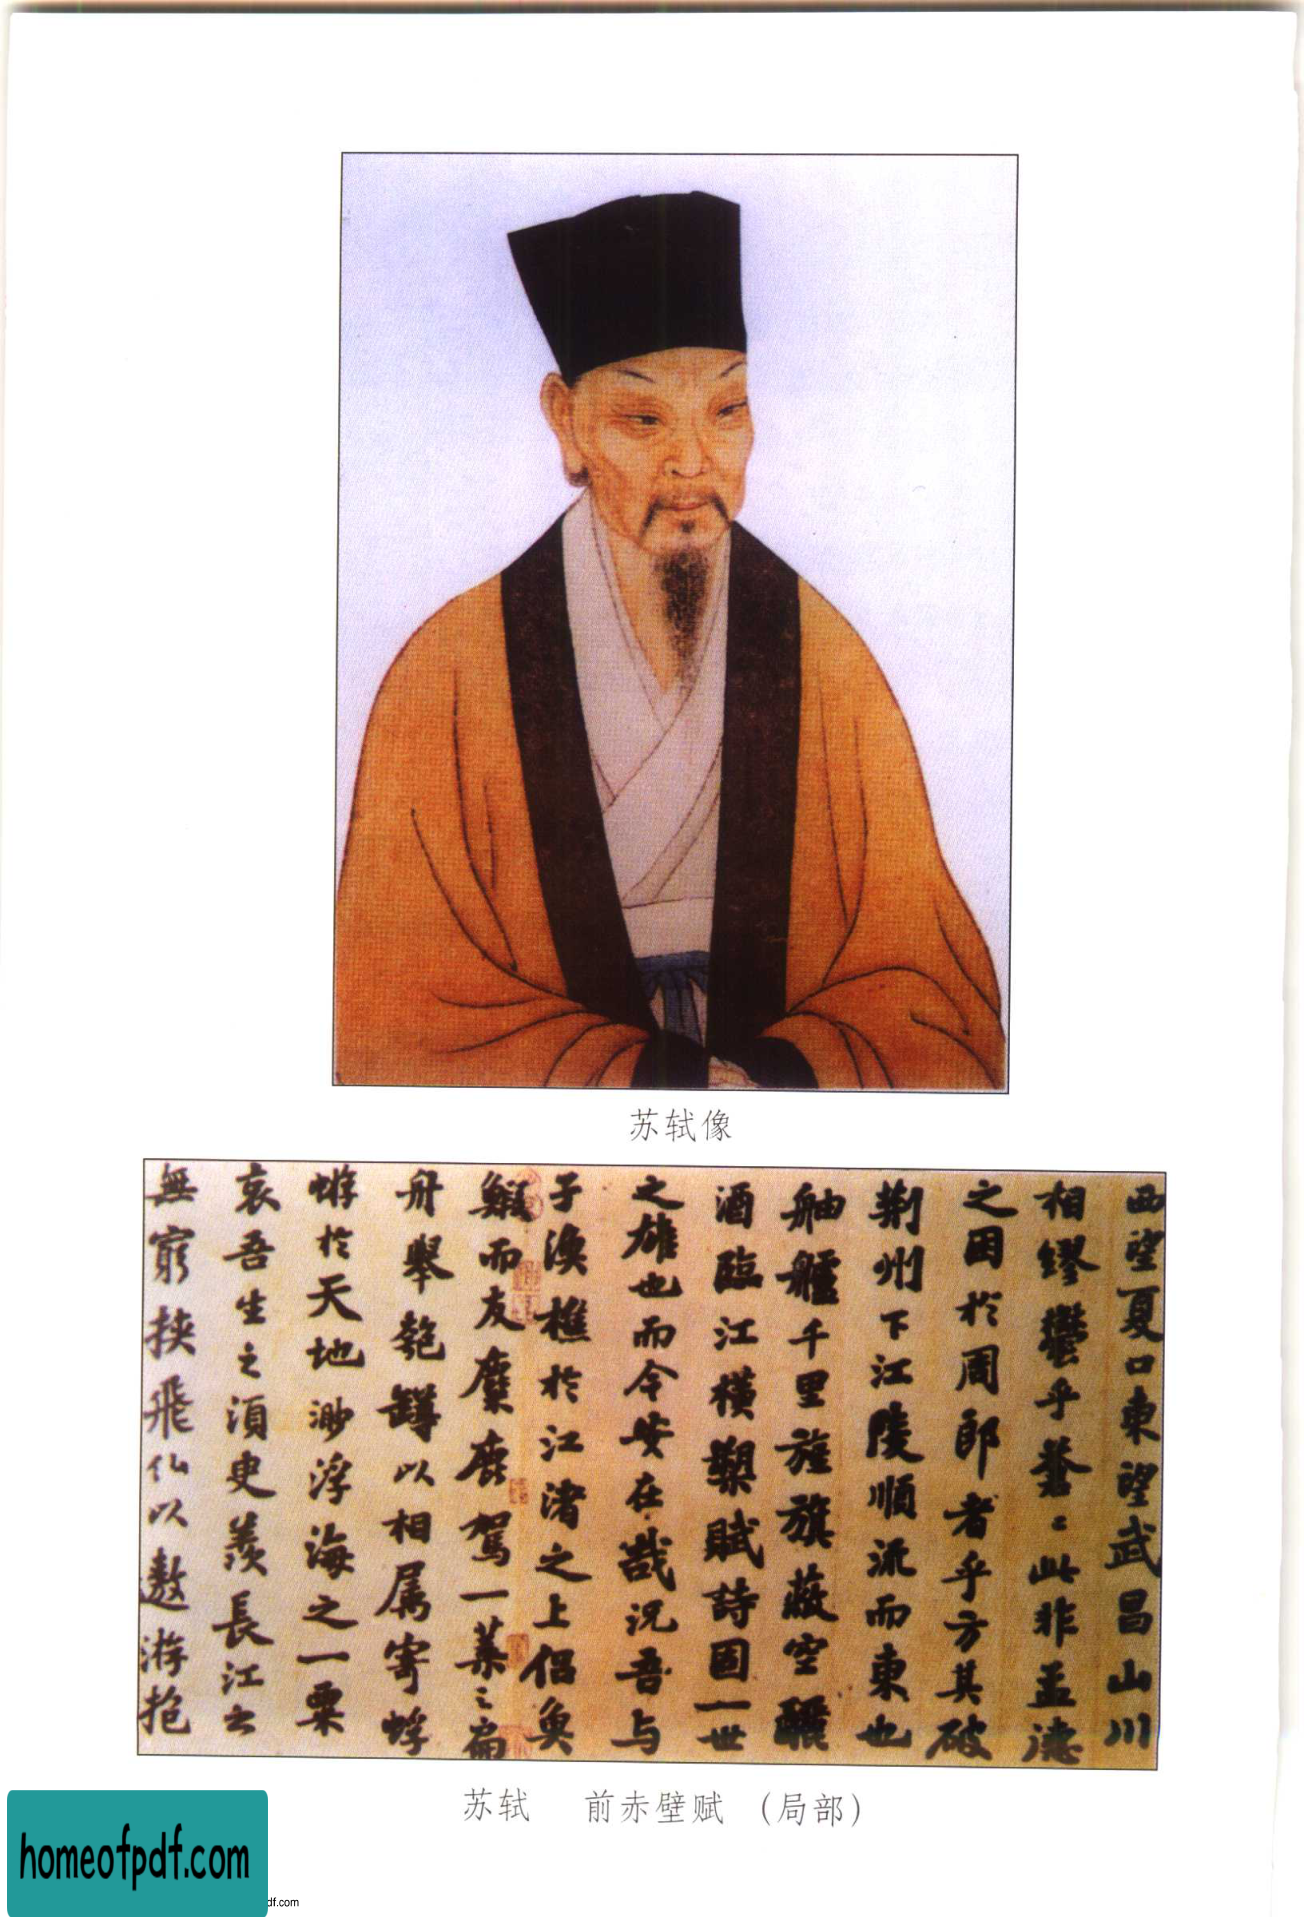 苏轼像
西望夏口東望武昌山川
相繆鬱乎蒼〻此非孟德
之困於周郎者乎方其破
荊州下江陵順流而東也
舳艫千里旌旗蔽空釃
酒臨江橫槊賦詩固一世
之雄也而今安在哉況吾与
子漁樵於江渚之上侶魚
鰕而友麋鹿駕一葉之扁
舟舉匏罇以相属寄蜉
蝣於天地渺浮海之一粟
哀吾生之須臾羨長江之
無窮挾飛仙以遨游抱
苏轼 前赤壁赋 (局部)
homeofpdf.com
df.com